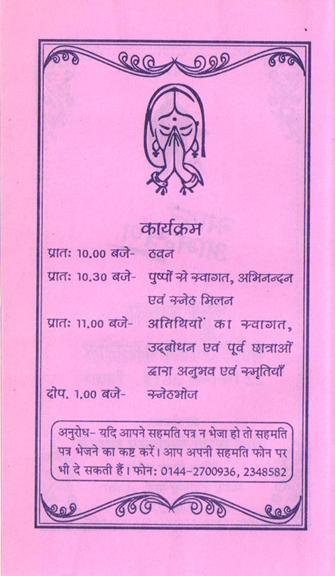 कार्यक्रम
प्रातः 10.00 बजे- हवन
प्रातः 10.30 बजे- पुष्पों से स्वागत, अभिनन्दन
एवं स्नेह मिलन
प्रातः 11.00 बजे- अतिथियों का स्वागत,
उद्बोधन एवं पूर्व छात्राओं
द्वारा अनुभव एवं स्मृतियाँ
दोप. 1.00 बजे- स्नेहभोज
अनुरोध- यदि आपने सहमति पत्र न भेजा हो तो सहमति
पत्र भेजने का कष्ट करें। आप अपनी सहमति फोन पर
भी दे सकती हैं। फोन: 0144-2700936, 2348582